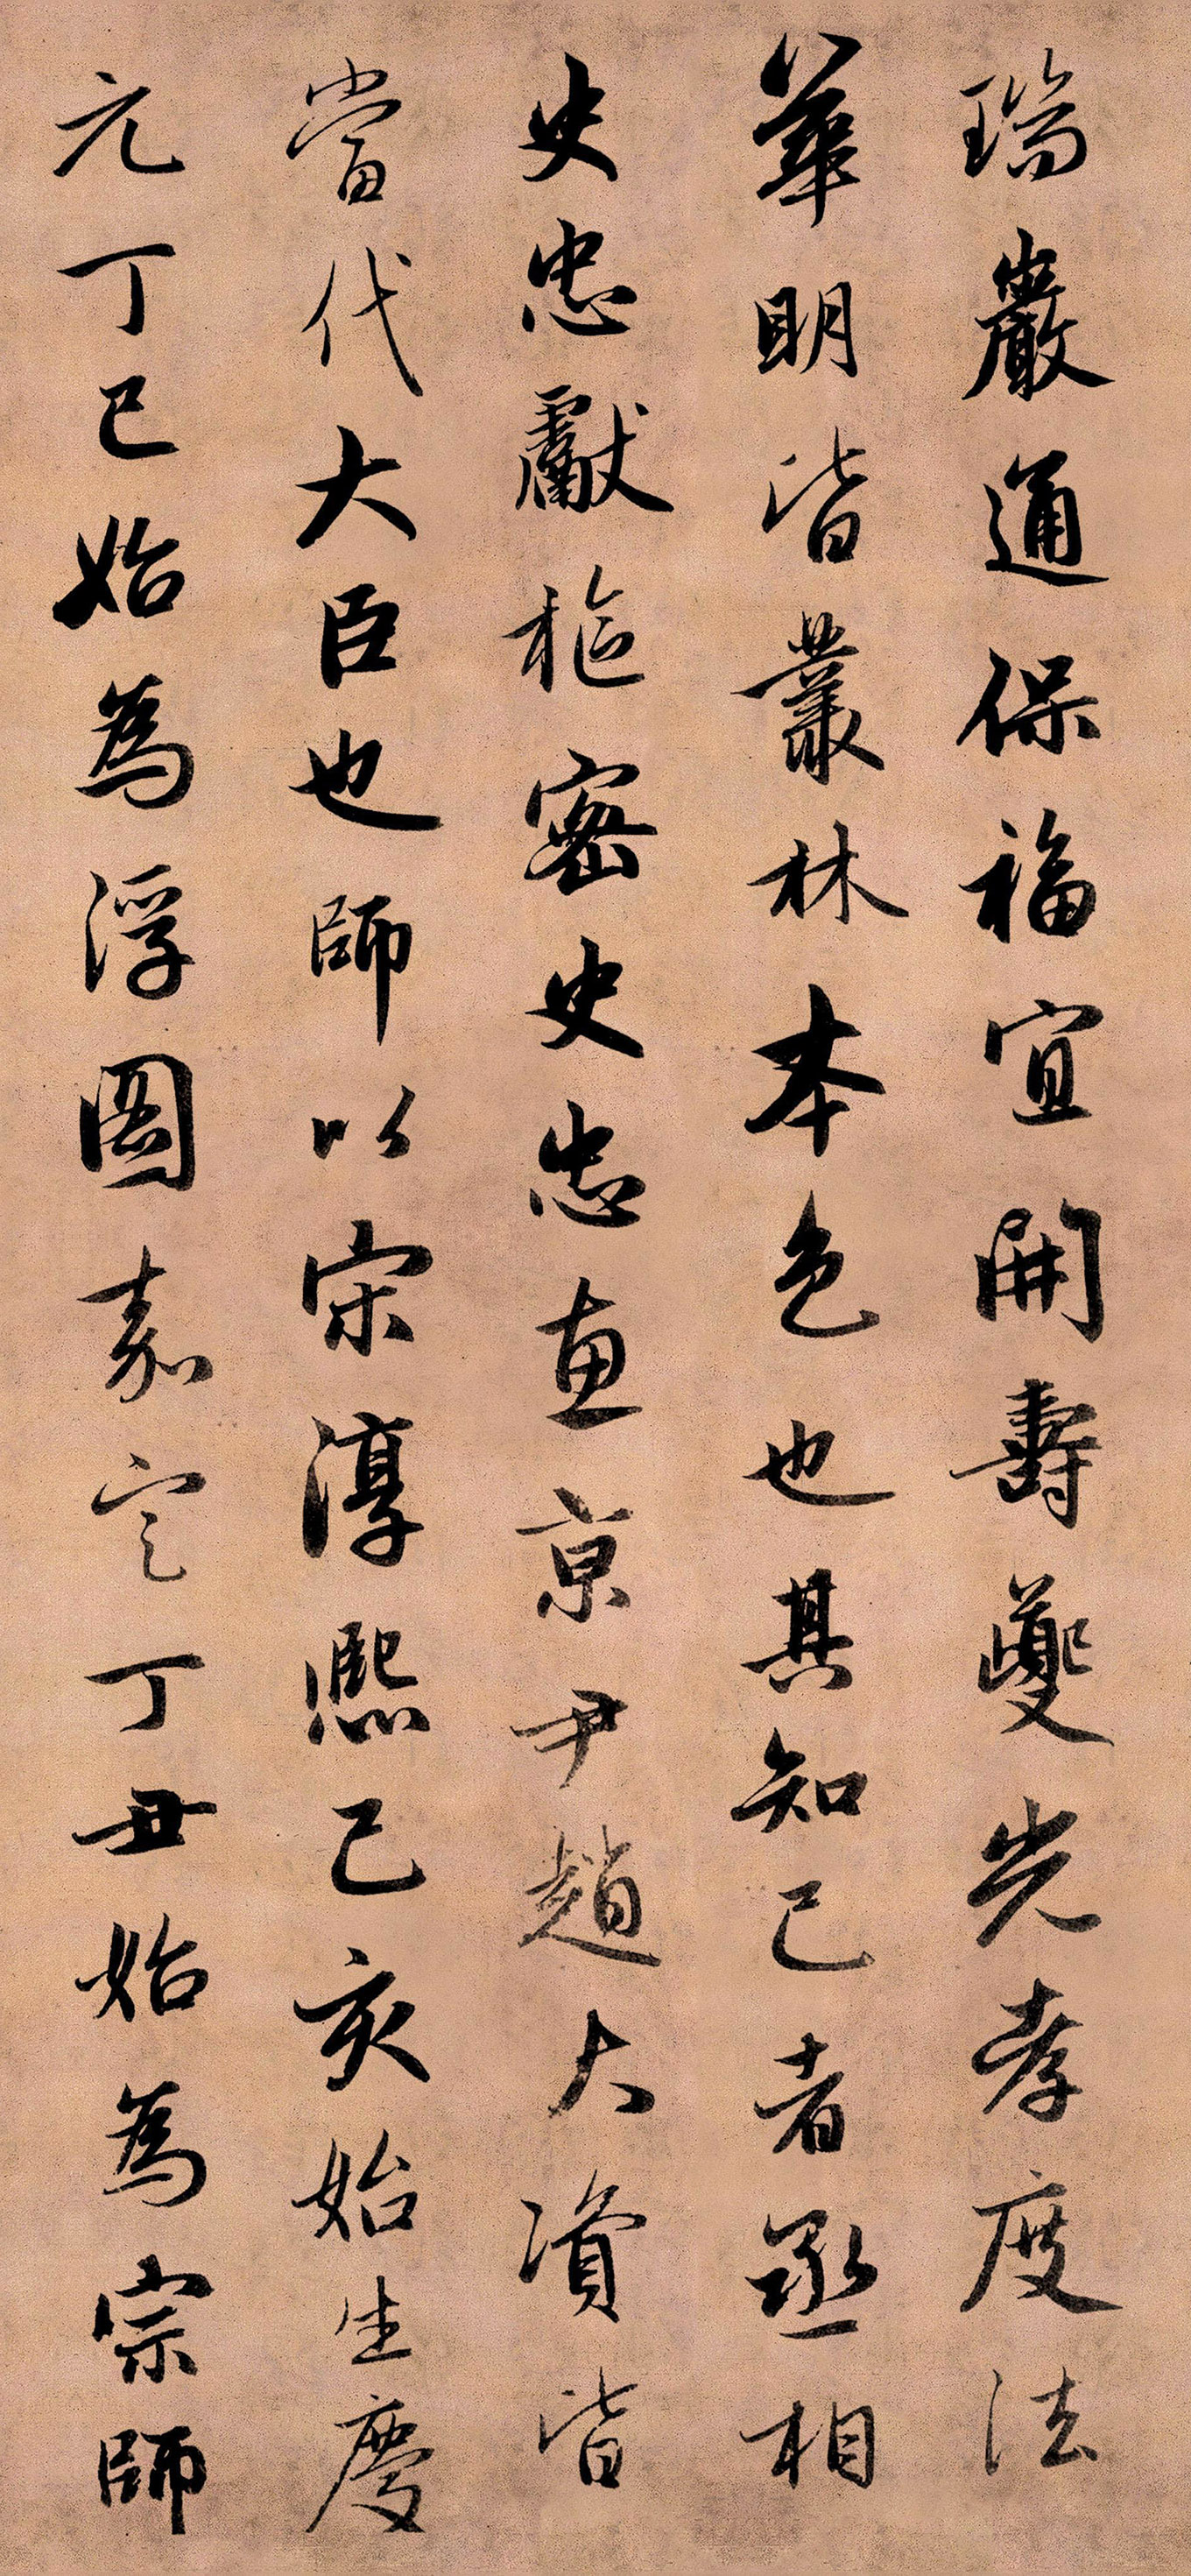 瑞巖通保福宜開壽夔光孝度法
華明皆叢林本色也其知己者丞相
史忠獻樞密史忠惠京尹趙大資皆
當代大臣也師以宋淳熙己亥始生慶
元丁巳始為浮圖嘉定丁丑始為宗師